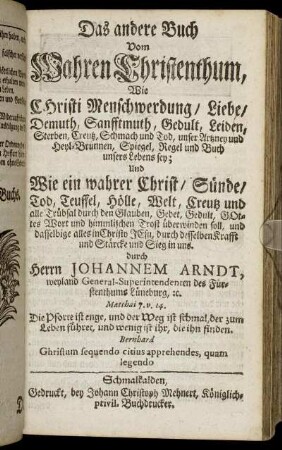 Das andere Buch
Vom
Wahren Christenthum,
Wie
CHristi Menschwerdung/ Liebe/
Demuth, Sanfftmuth, Gedult, Leiden,
Sterben, Creutz, Schmach und Tod, unser Artzney und
Heyl-Brunnen, Spiegel, Regel und Buch
unsers Lebens sey;
Und
Wie ein wahrer Christ/ Sünde/
Tod, Teuffel, Hölle, Welt, Creutz und
alle Trübsal durch den Glauben, Gebet, Gedult, GOt-
tes Wort und himmlischen Trost überwinden soll, und
dasselbige alles in Christo JEsu, durch desselben Krafft
und Stärcke und Sieg in uns.
durch
Herrn JOHANNEM ARNDT,
weyland General-Superintendenten des Für-
stenthums Lüneburg, ꝛc.
Matthäi 7. v. 14.
Die Pforte ist enge, und der Weg ist schmal, der zum
Leben führet, und wenig ist ihr, die ihn finden.
Bernhard
Christum sequendo citius apprehendes, quam
legendo
Schmalkalden,
Gedruckt, bey Johann Christoph Mehnert, Königlich-
privil. Buchdrucker.
Buchs.